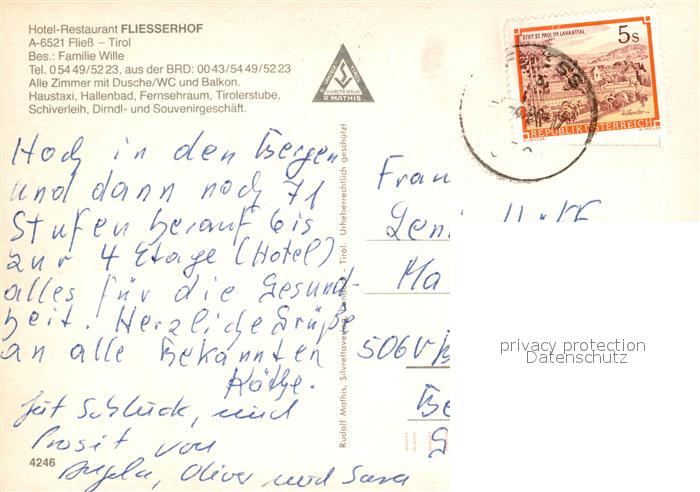 Hotel-Restaurant FLIESSERHOF
A-6521 Fließ – Tirol
Bes.: Familie Wille
Tel. 0 54 49/52 23, aus der BRD: 00 43/54 49/52 23
Alle Zimmer mit Dusche/WC und Balkon.
Haustaxi, Hallenbad, Fernsehraum, Tirolerstube,
Schiverleih, Dirndl- und Souvenirgeschäft.
SILVRETTA VERLAG
R. MATHIS
STIFT ST. PAUL IM LAVANTTAL
5 s
REPUBLIK ÖSTERREICH
Hoch in den Bergen
und dann noch 71
Stufen herauf bis
zur 4 Etage (Hotel)
alles für die Gesund-
heit. Herzliche Grüße
an alle Bekannten
Käthe.
Gut Schluck, und
Prosit von
Angela, Oliver und Sara
4246
Rudolf Mathis, Silvrettaverlag, - Tirol. Urheberrechtlich geschützt
Frau
Leni
Ma
506
Be
privacy protection
Datenschutz